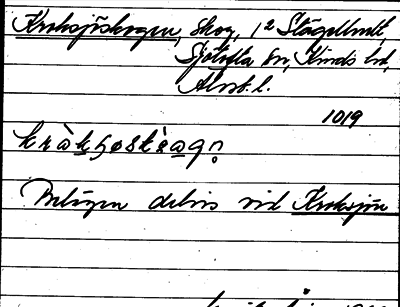 Kroksjöskogen, skog, 1/2 Stägelhult,
Sjötofta sn, Kinds hd,
Älvsb. l.
1019
Belägen delvis vid Kroksjön